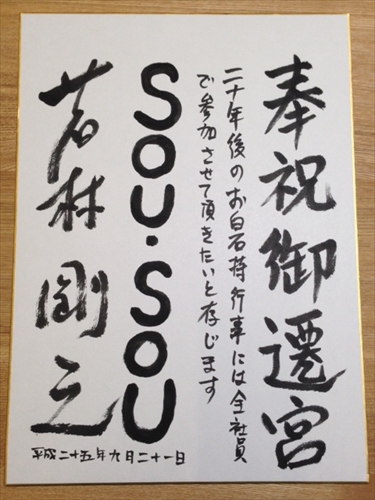 奉祝御遷宮
二十年後のお白石持行事には全社員
で参加させて頂きたいと存じます
SOU・SOU
若林剛之
平成二十五年九月二十一日